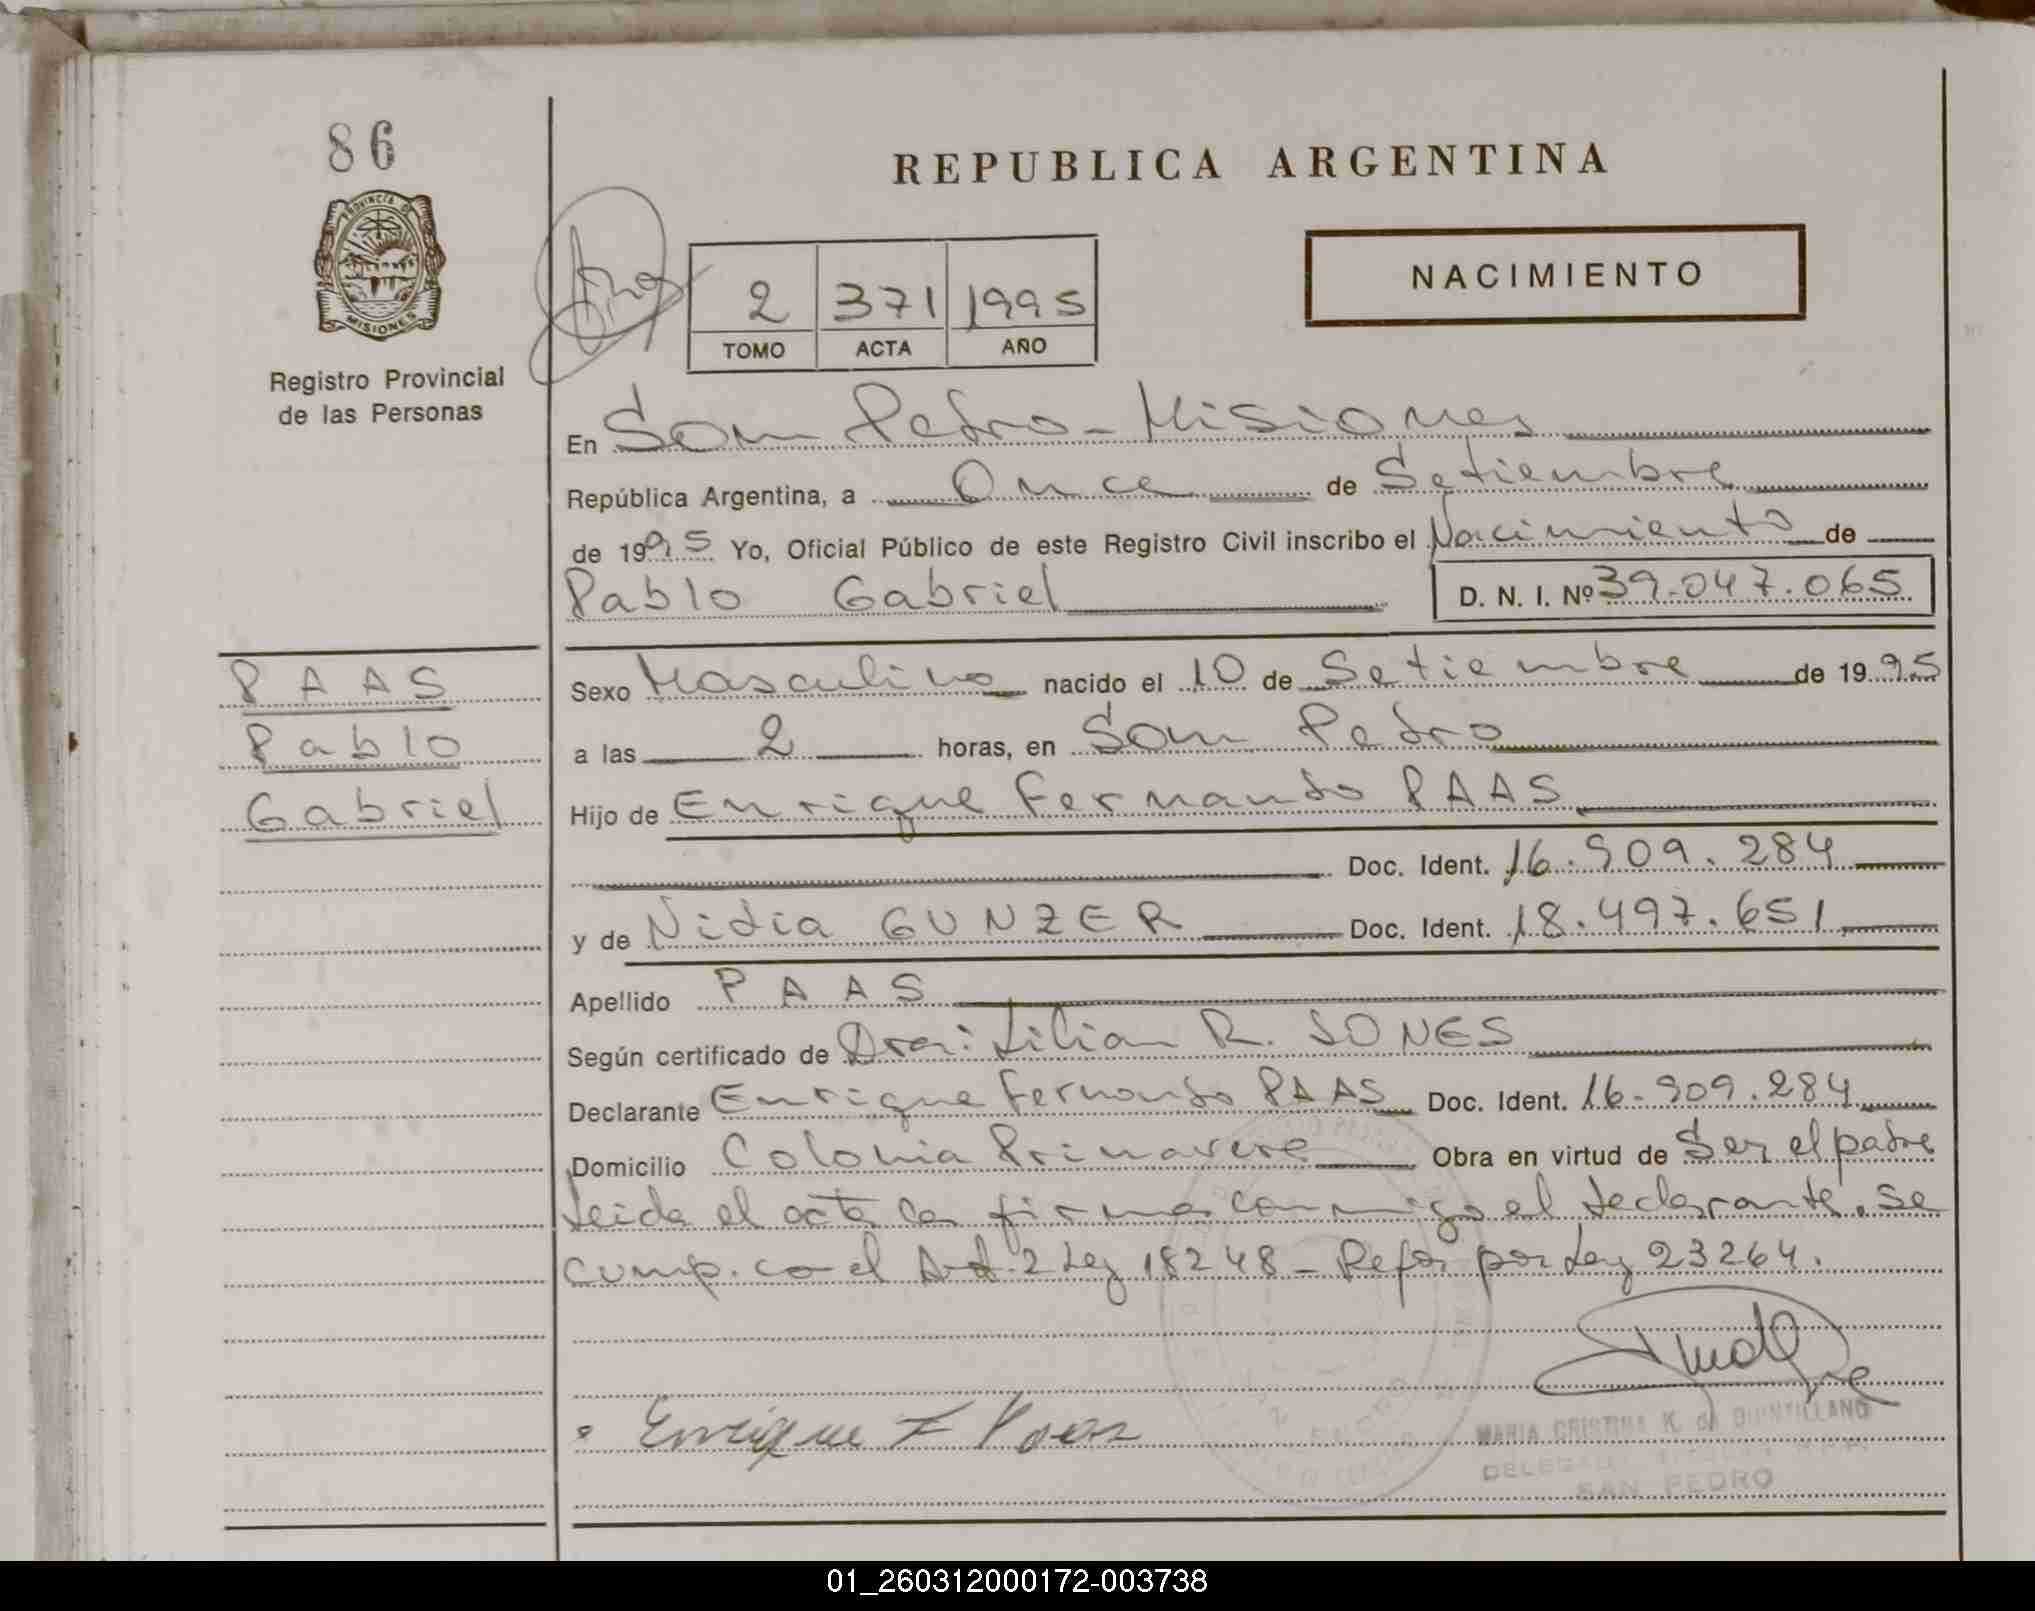 86
PROVINCIA DE
MISIONES
Registro Provincial
de las Personas
REPUBLICA ARGENTINA
NACIMIENTO
2 371 1995
TOMO ACTA AÑO
En San Pedro - Misiones
República Argentina, a Once de Setiembre
de 1995 Yo, Oficial Público de este Registro Civil inscribo el Nacimiento de
Pablo Gabriel D. N. I. Nº 39.047.065
PAAS
Pablo
Gabriel
Sexo Masculino nacido el 10 de Setiembre de 1995
a las 2 horas, en San Pedro
Hijo de Enrique Fernando PAAS
Doc. Ident. 16.909.284
y de Nidia GUNZER Doc. Ident. 18.497.651
Apellido PAAS
Según certificado de Dra: Lilian R. JONES
Declarante Enrique Fernando PAAS Doc. Ident. 16.909.284
Domicilio Colonia Primavera Obra en virtud de Ser el padre
Leida el acta la firma conmigo el declarante. se
cump. co el Art. 2 Ley 18248 - Refor por Ley 23264.
Enrique F Paas
MARIA CRISTINA K. de QUINTILLANO
SAN PEDRO
01_260312000172-003738